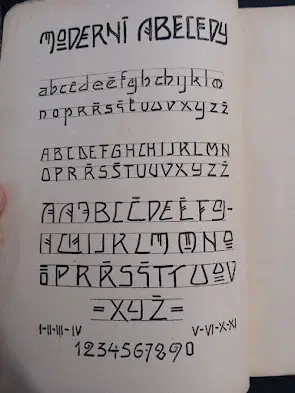 MODERNÍ ABECEDY
abcčdeěfghchijklm
nopqrřsštuúvxyzž
ABCDEFGHCHIJKLMN
OPRŘSŠTUŮVXYZŽ
AAABCČDEĚFG-
HCHIJKLMMNO
ÖPRŘSŠTTUŮV
=XYŽ=
I-II-III-IV V-VI-X-XI
1234567890